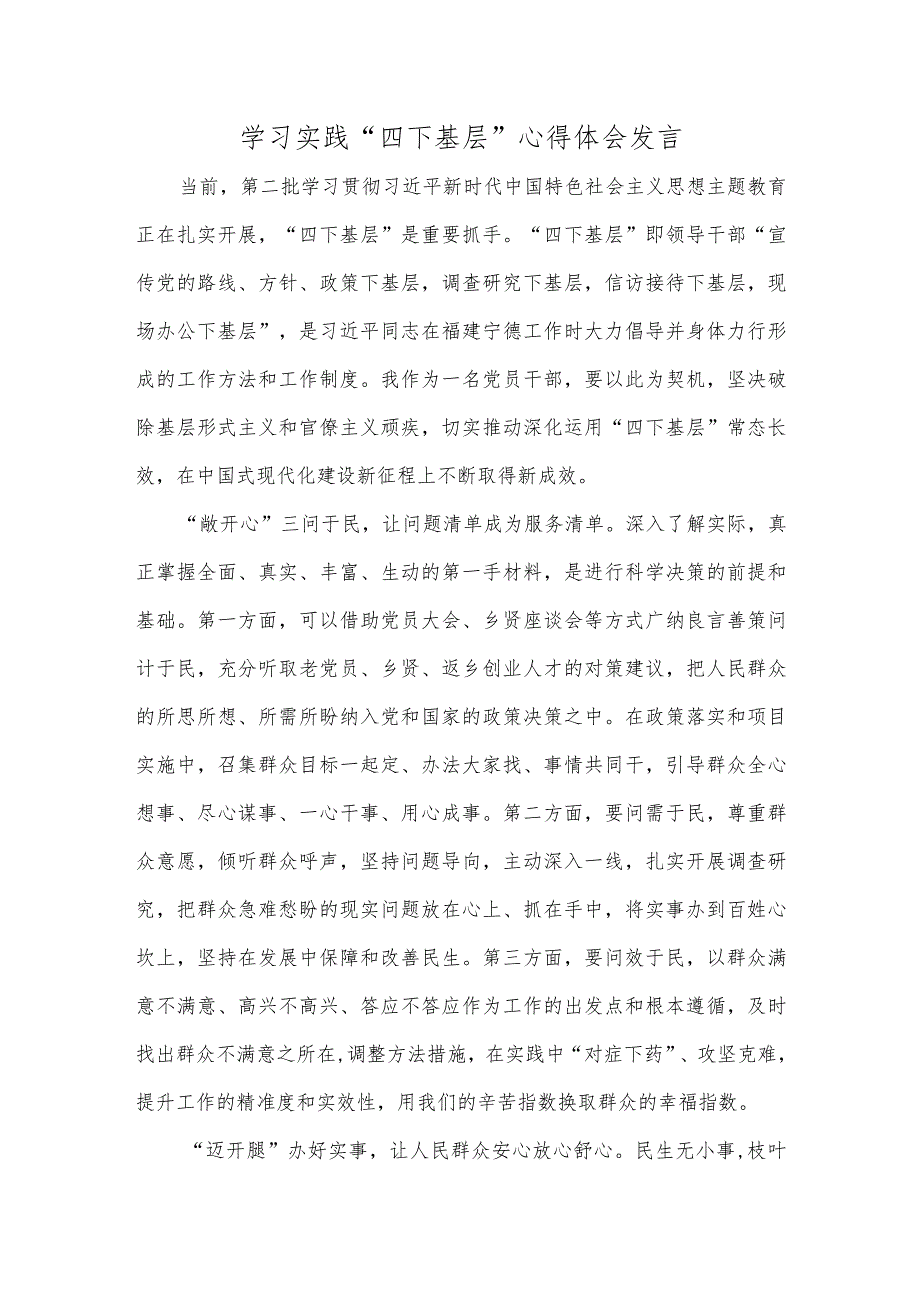 学习实践“四下基层”心得体会发言
当前，第二批学习贯彻习近平新时代中国特色社会主义思想主题教育
正在扎实开展，“四下基层”是重要抓手。“四下基层”即领导干部“宣
传党的路线、方针、政策下基层，调查研究下基层，信访接待下基层，现
场办公下基层”，是习近平同志在福建宁德工作时大力倡导并身体力行形
成的工作方法和工作制度。我作为一名党员干部，要以此为契机，坚决破
除基层形式主义和官僚主义顽疾，切实推动深化运用“四下基层”常态长
效，在中国式现代化建设新征程上不断取得新成效。
“敞开心”三问于民，让问题清单成为服务清单。深入了解实际，真
正掌握全面、真实、丰富、生动的第一手材料，是进行科学决策的前提和
基础。第一方面，可以借助党员大会、乡贤座谈会等方式广纳良言善策问
计于民，充分听取老党员、乡贤、返乡创业人才的对策建议，把人民群众
的所思所想、所需所盼纳入党和国家的政策决策之中。在政策落实和项目
实施中，召集群众目标一起定、办法大家找、事情共同干，引导群众全心
想事、尽心谋事、一心干事、用心成事。第二方面，要问需于民，尊重群
众意愿，倾听群众呼声，坚持问题导向，主动深入一线，扎实开展调查研
究，把群众急难愁盼的现实问题放在心上、抓在手中，将实事办到百姓心
坎上，坚持在发展中保障和改善民生。第三方面，要问效于民，以群众满
意不满意、高兴不高兴、答应不答应作为工作的出发点和根本遵循，及时
找出群众不满意之所在,调整方法措施，在实践中“对症下药”、攻坚克难，
提升工作的精准度和实效性，用我们的辛苦指数换取群众的幸福指数。
“迈开腿”办好实事，让人民群众安心放心舒心。民生无小事,枝叶